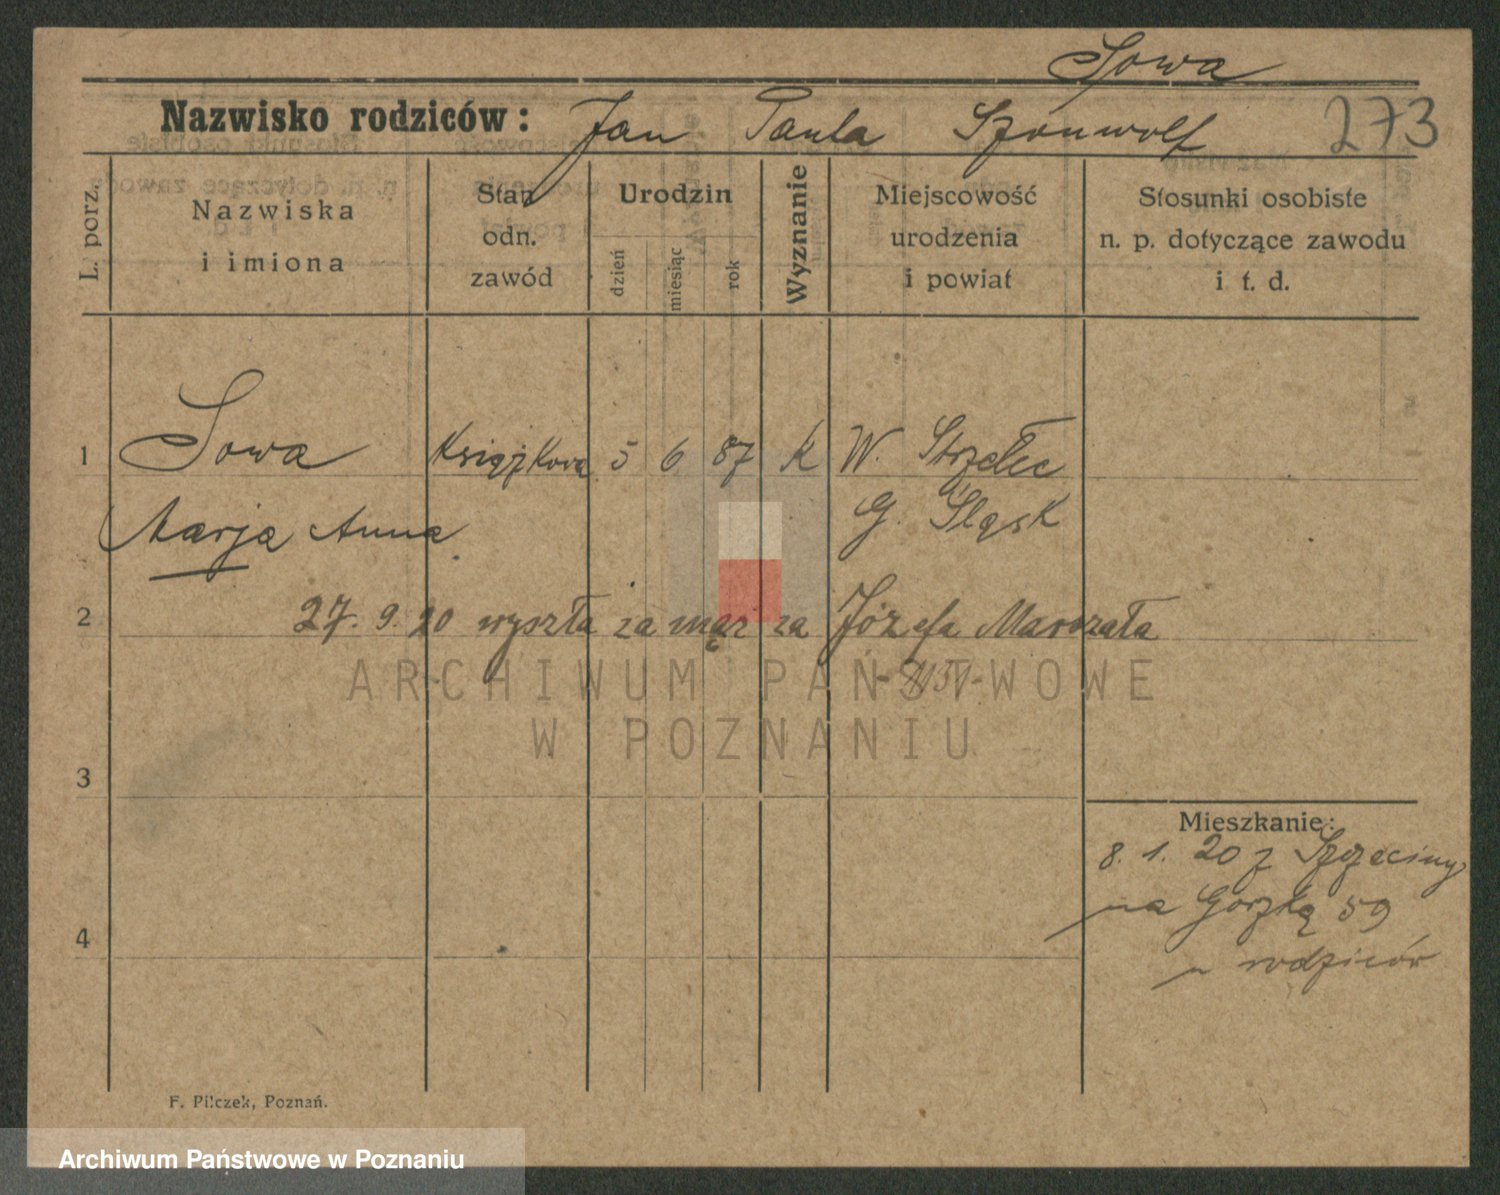 Sowa
Nazwisko rodziców: Jan Paula Szönwolf 273
L. porz.
Nazwiska i imiona
Stan odn. zawód
Urodzin
dzień miesiąc rok
Wyznanie
Miejscowość urodzenia i powiat
Stosunki osobiste n. p. dotyczące zawodu i t. d.
1 Sowa Książkowa 5 6 87 k W. Strzelec
Marja Anna G. Śląsk
2 27. 9. 20 wyszła za mąż za Józefa
3
Mieszkanie:
8. 1. 20 z
na Gorzką 59
u rodziców
4
F. Pilczek, Poznań.
ARCHIWUM PAŃSTWOWE
W POZNANIU
Archiwum Państwowe w Poznaniu